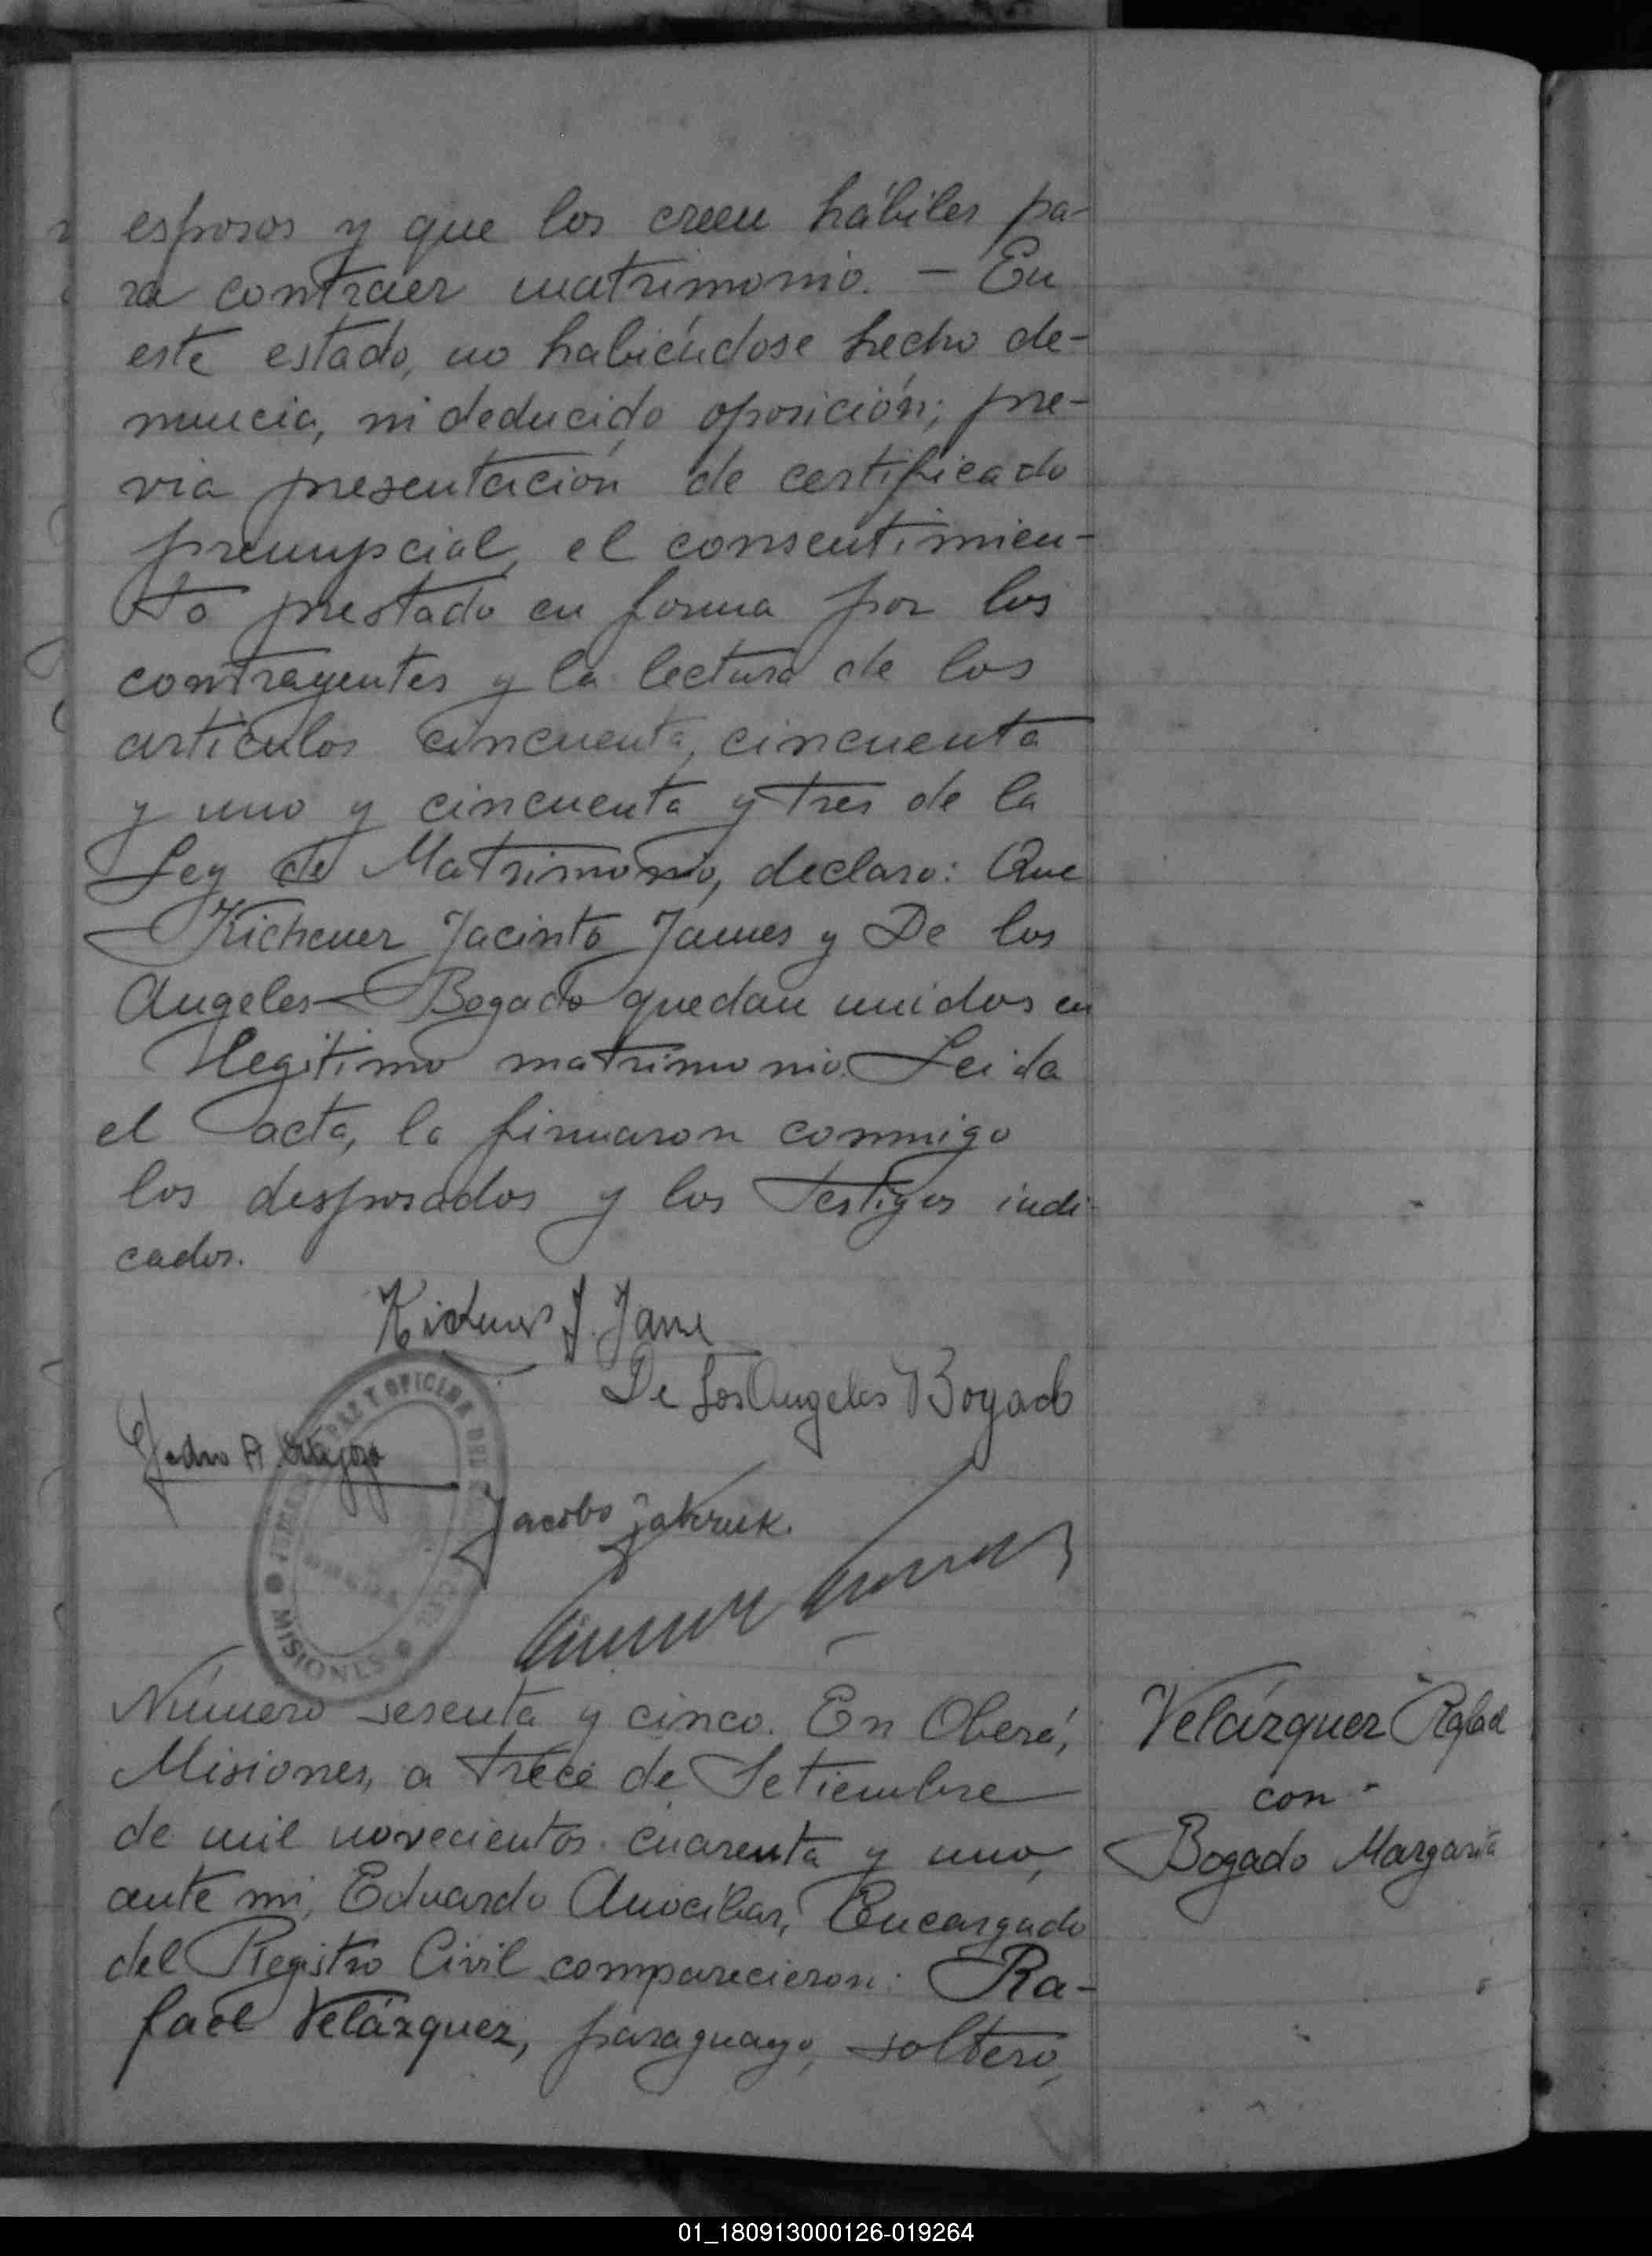 esposos y que los creen hábiles pa-
ra contraer matrimonio. - En
este estado, no habiéndose hecho de-
nuncia, ni deducido oposición; pre-
via presentación de certificado
prenupcial, el consentimien-
to prestado en forma por los
contrayentes y la lectura de los
artículos cincuenta, cincuenta
y uno y cincuenta y tres de la
Ley de Matrimonio, declaro: Que
Kichener Jacinto James y De los
Angeles Bogado quedan unidos en
legítimo matrimonio. Leida
el acta, la firmaron conmigo
los desposados y los testigos indi-
cados.
J. Jame
De Los Angeles Bogado
Pedro A.
Jacobo
MISIONES
Número sesenta y cinco. En Oberá,
Misiones, a trece de Setiembre
de mil novecientos cuarenta y uno,
ante mí, Eduardo Anocibar, Encargado
del Registro Civil comparecieron: Ra-
fael Velázquez, paraguayo, soltero,
Velázquez Rafael
con
Bogado Margarita
01_180913000126-019264